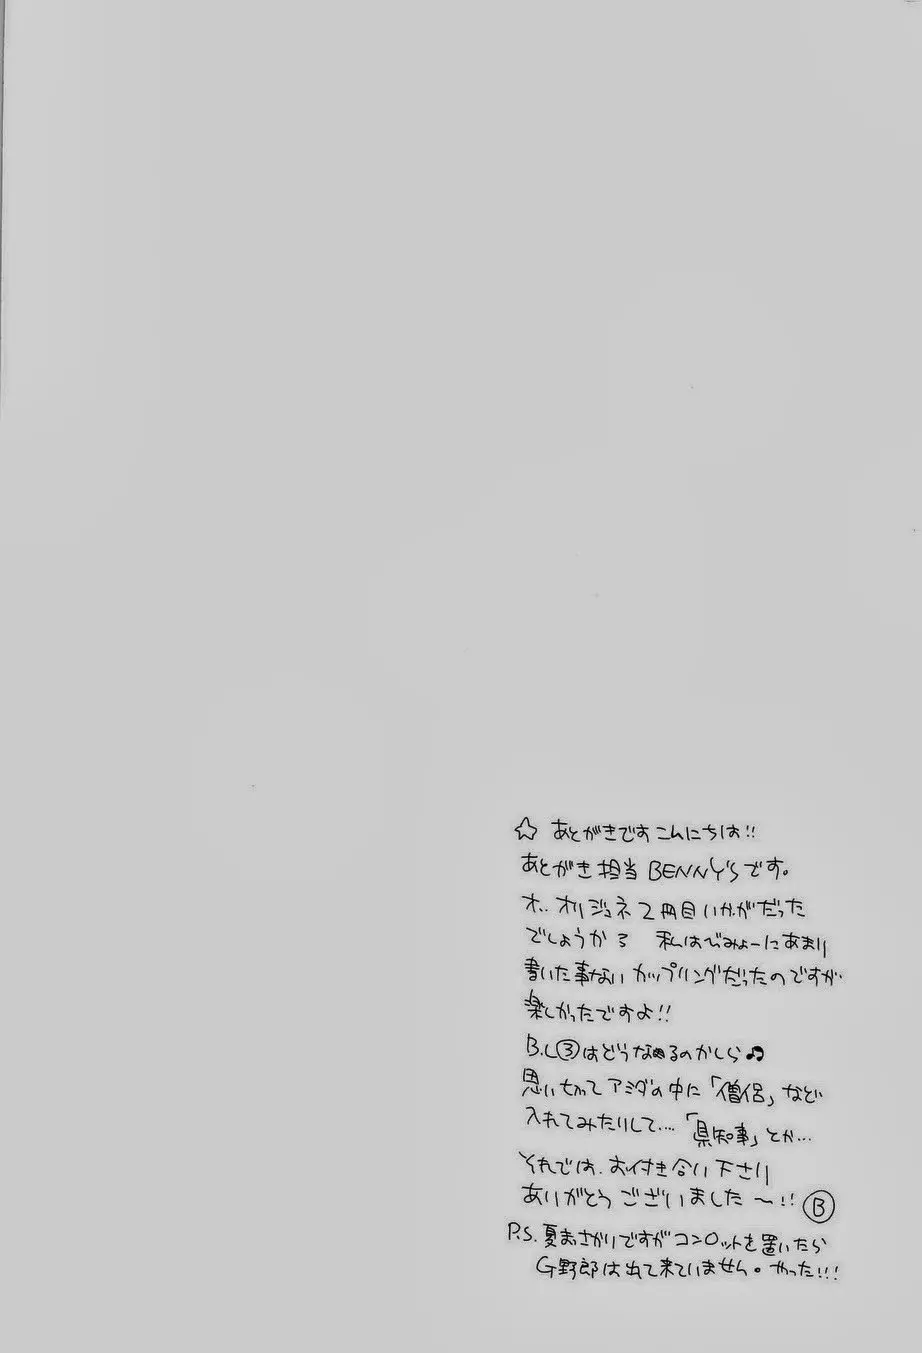 ☆ あとがきです こんにちは!!
あとがき担当 BENNY'Sです。
オ.. オリジュネ 2冊目いかがだった
でしょうか? 私はびみょーにあまり
書いた事ない カップリングだったのですが
楽しかったですよ!!
B.L③はどうなるのかしら♫
思い切って アミダの中に「僧侶」など
入れてみたりして…. 「県知事」とか…
それでは、お付き合い下さり
ありがとうございました 〜!! Ⓑ
P.S. 夏まっさかりですが コンロットを置いたら
G野郎は出て来ていません。やった!!!